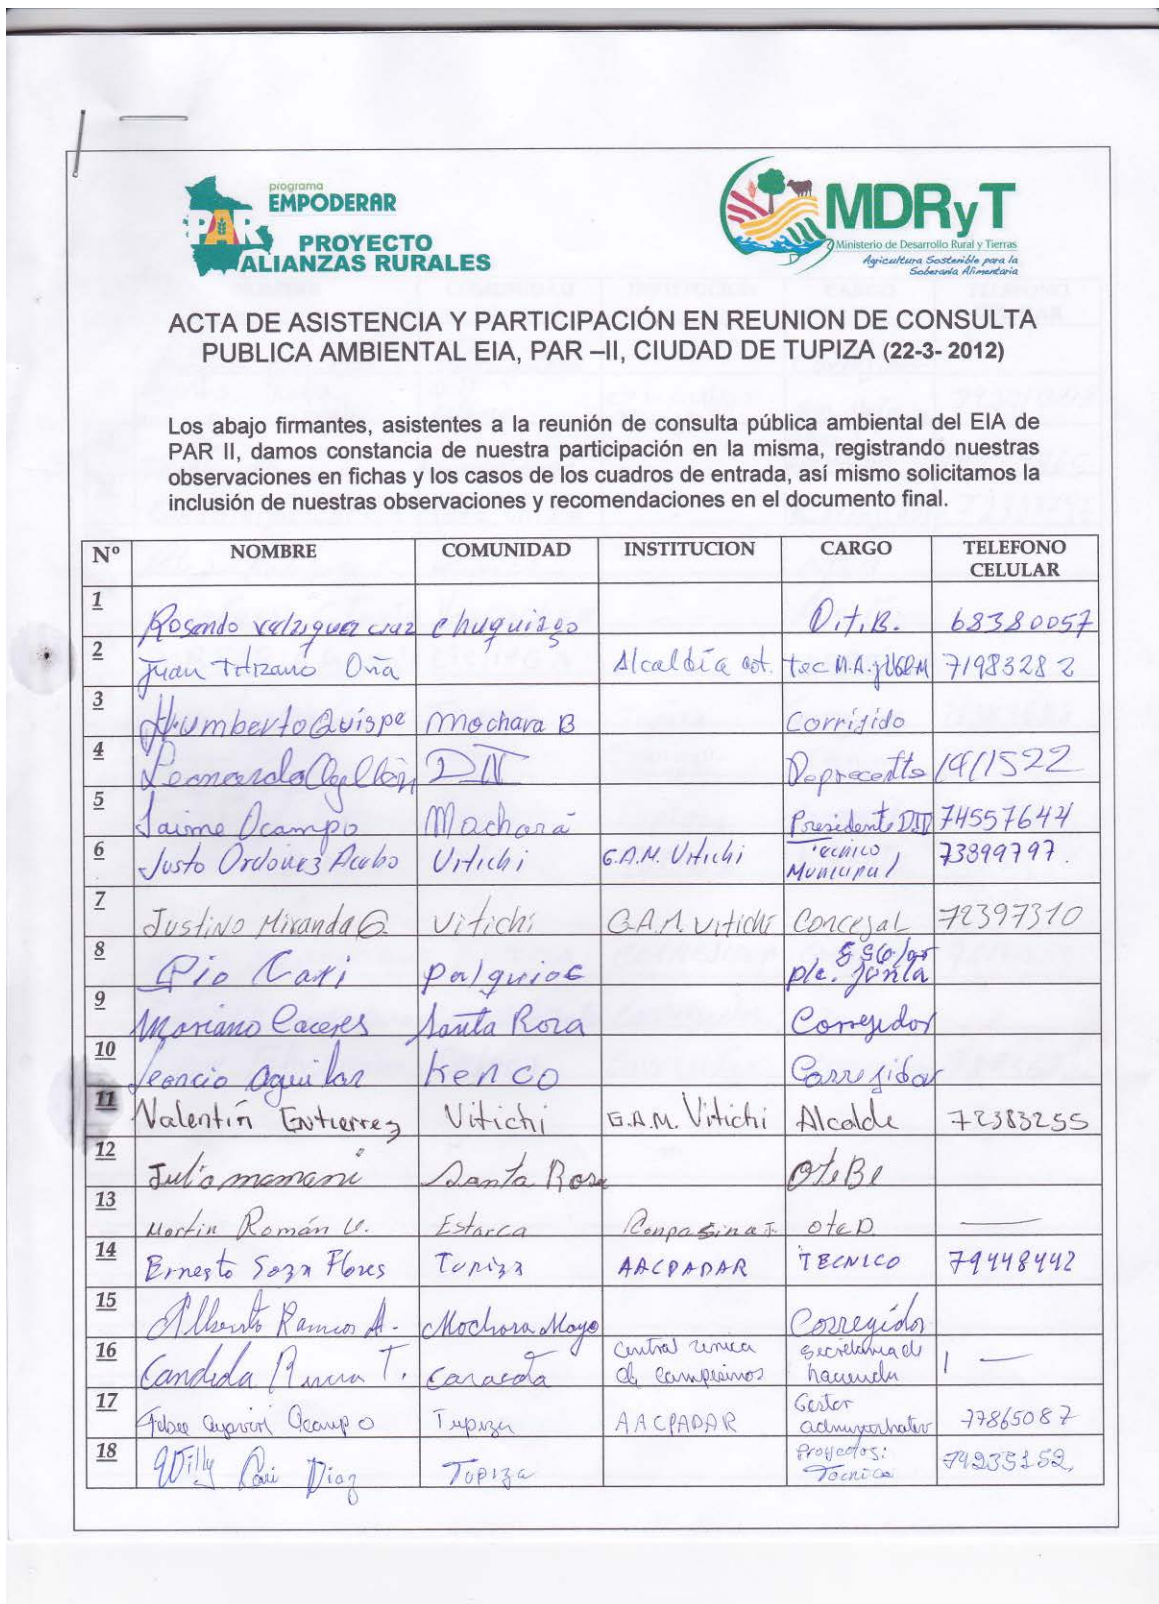 programa
EMPODERAR
PAR
PROYECTO
ALIANZAS RURALES
MDRyT
Ministerio de Desarrollo Rural y Tierras
Agricultura Sostenible para la
Soberanía Alimentaria
ACTA DE ASISTENCIA Y PARTICIPACIÓN EN REUNION DE CONSULTA
PUBLICA AMBIENTAL EIA, PAR –II, CIUDAD DE TUPIZA (22-3- 2012)
Los abajo firmantes, asistentes a la reunión de consulta pública ambiental del EIA de
PAR II, damos constancia de nuestra participación en la misma, registrando nuestras
observaciones en fichas y los casos de los cuadros de entrada, así mismo solicitamos la
inclusión de nuestras observaciones y recomendaciones en el documento final.
Nº NOMBRE COMUNIDAD INSTITUCION CARGO TELEFONO CELULAR
1 Rosendo O.T.B. 68380057
2 Juan Oña Alcaldía tec M.A. 71983282
3 Humberto Quispe Mochara B Corrijido
4 Leonardo
5 Jaime Ocampo Mochará Presidente 74557644
6 Justo Ordoñez Vitichi G.A.M. Vitichi Técnico Municipal 73899797.
7 Justino Miranda G. Vitichi G.A.M. Vitichi Concejal 72397310
8 Pio Cari Junta
9 Mariano Caceres Santa Rosa Corregidor
10 Leoncio Aguilar Kenco Corregidor
11 Valentín Gutierrez Vitichi G.A.M. Vitichi Alcalde 72383255
12 Julio mamani Santa Rosa OteBe
13 Martin Román V. Estarca OteD
14 Ernesto Soza Flores Tupiza AACPADAR TECNICO 79448442
15 Alberto Ramos A. Mochara Mayo Corregidor
16 Candida T. Central unica de campesinos secretaria de hacienda
17 Ocampo Tupiza AACPADAR Gestor administrativo 77865087
18 Willy Cari Diaz Tupiza Proyectos: Tecnico 74235152